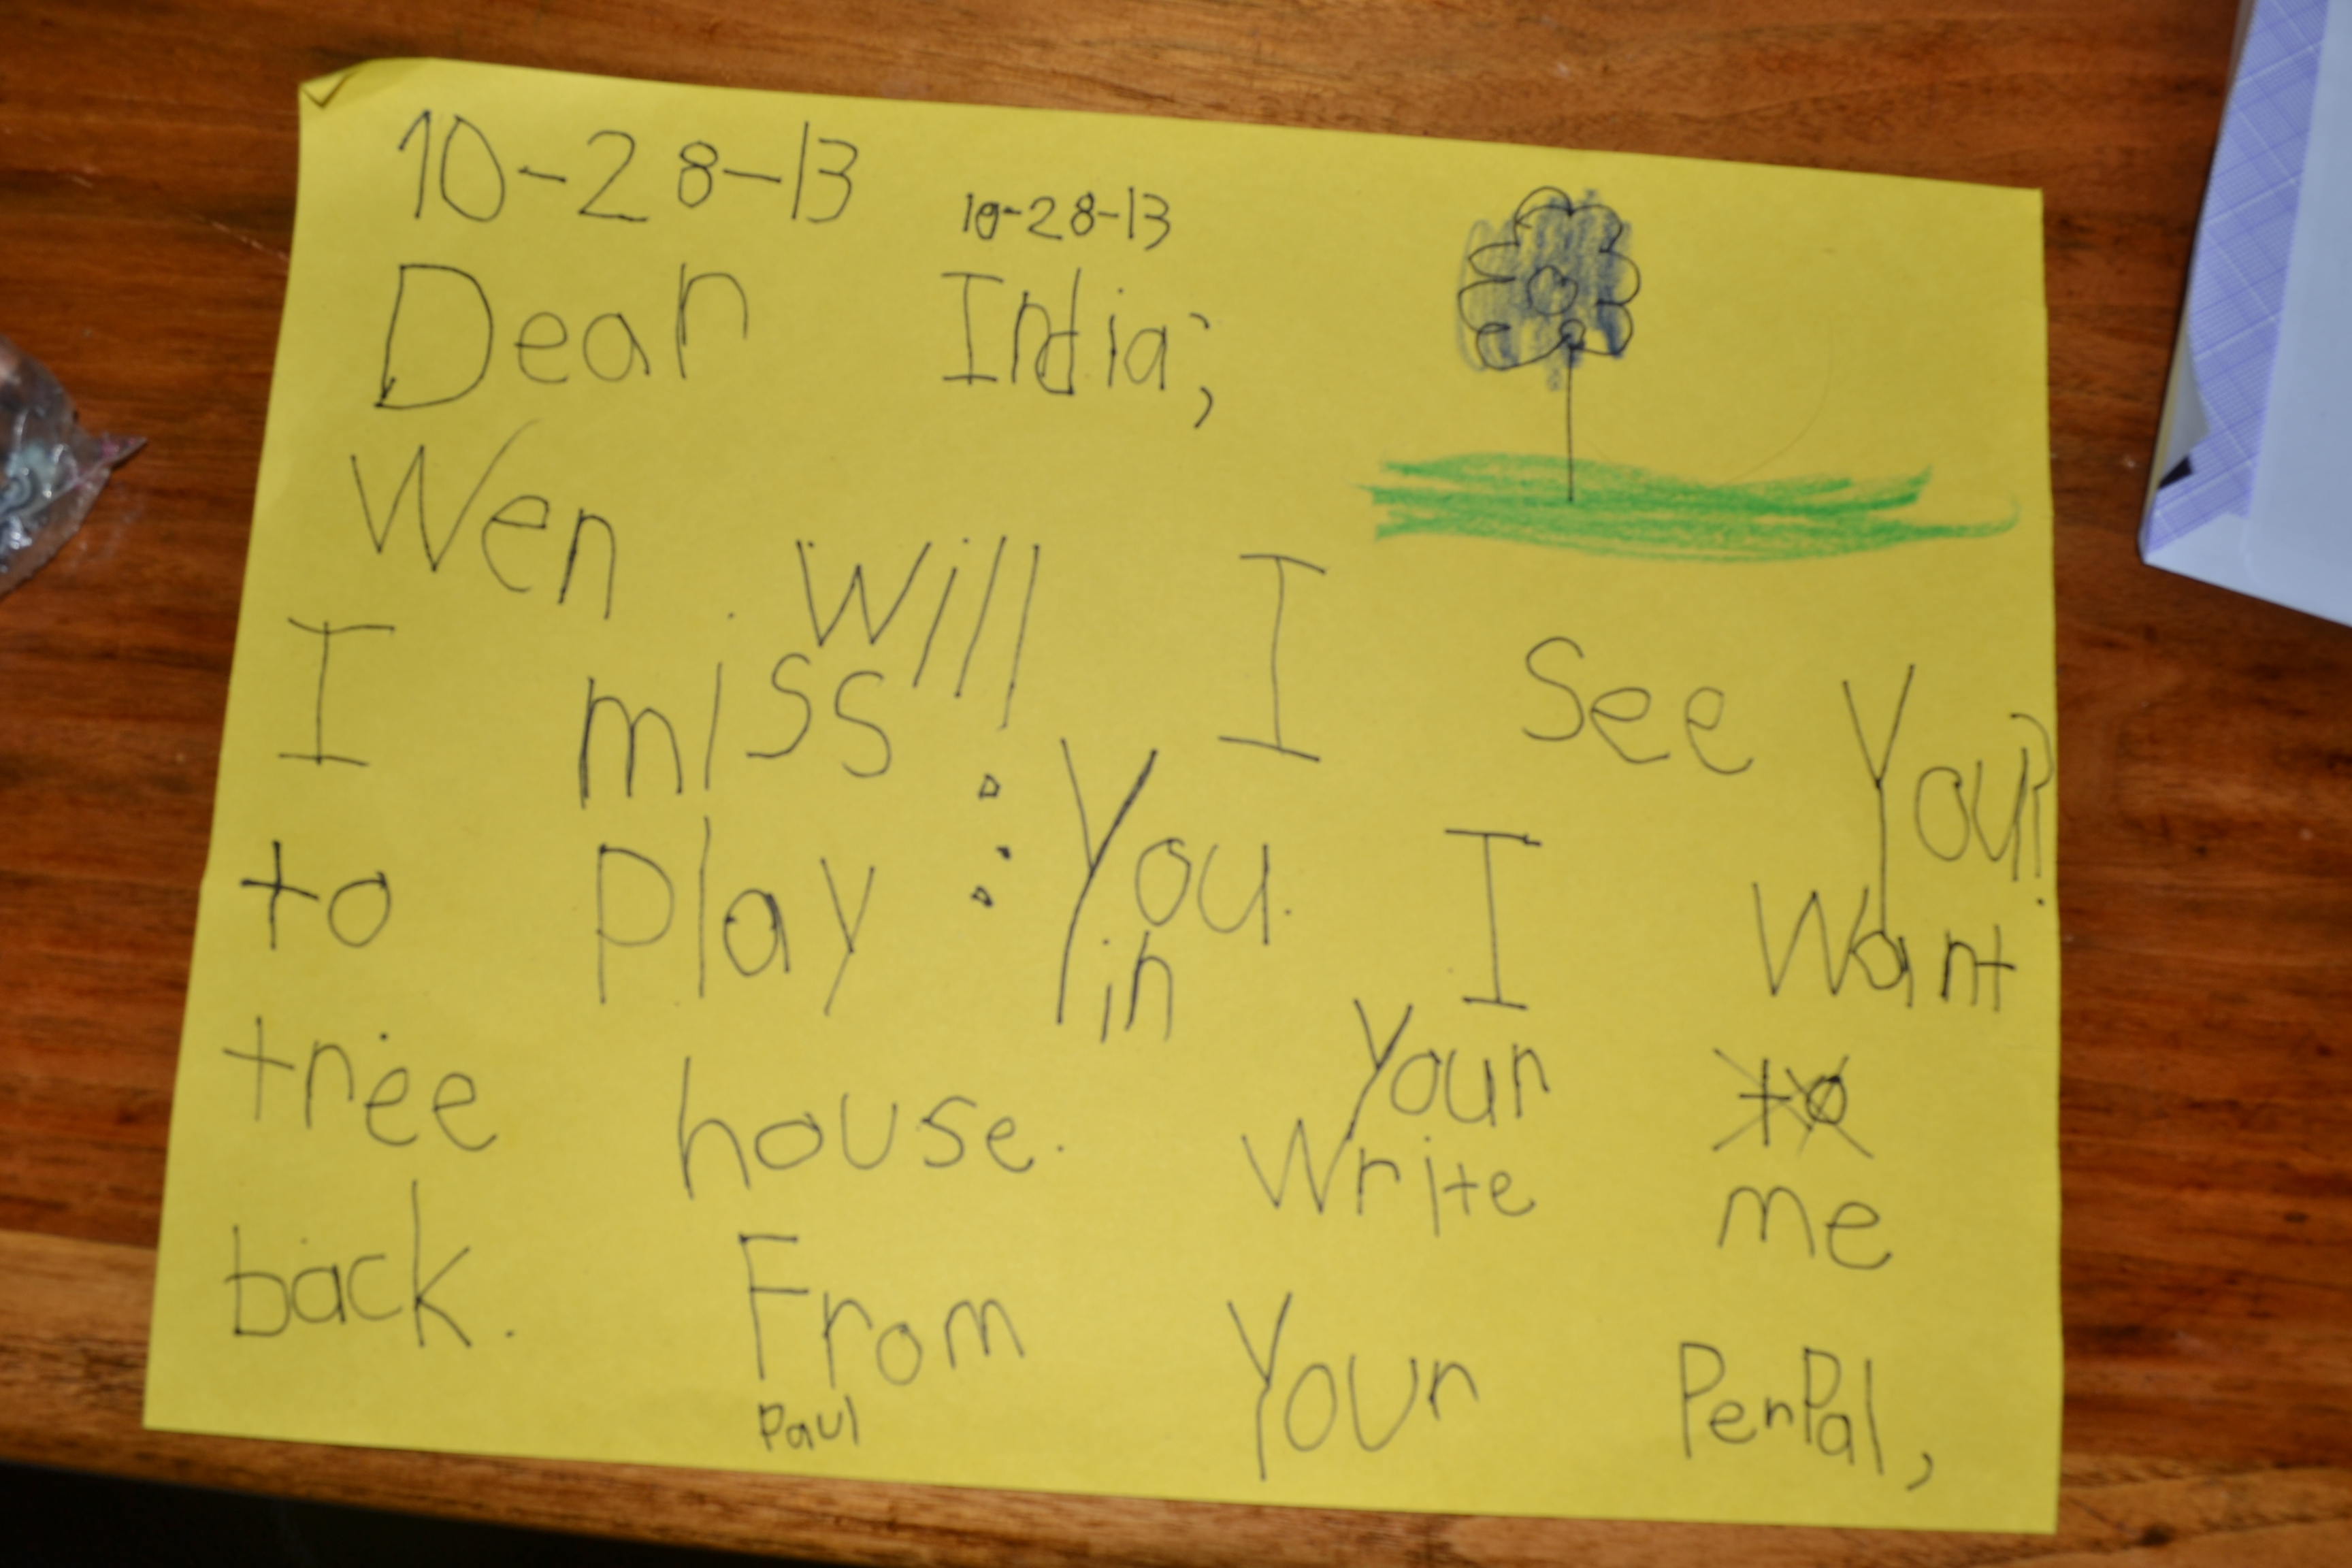 10-28-13 10-28-13
Dear India,
Wen will I see you?
I miss you. I want
to play in your to
tree house. Write me
back. From Your PenPal,
Paul